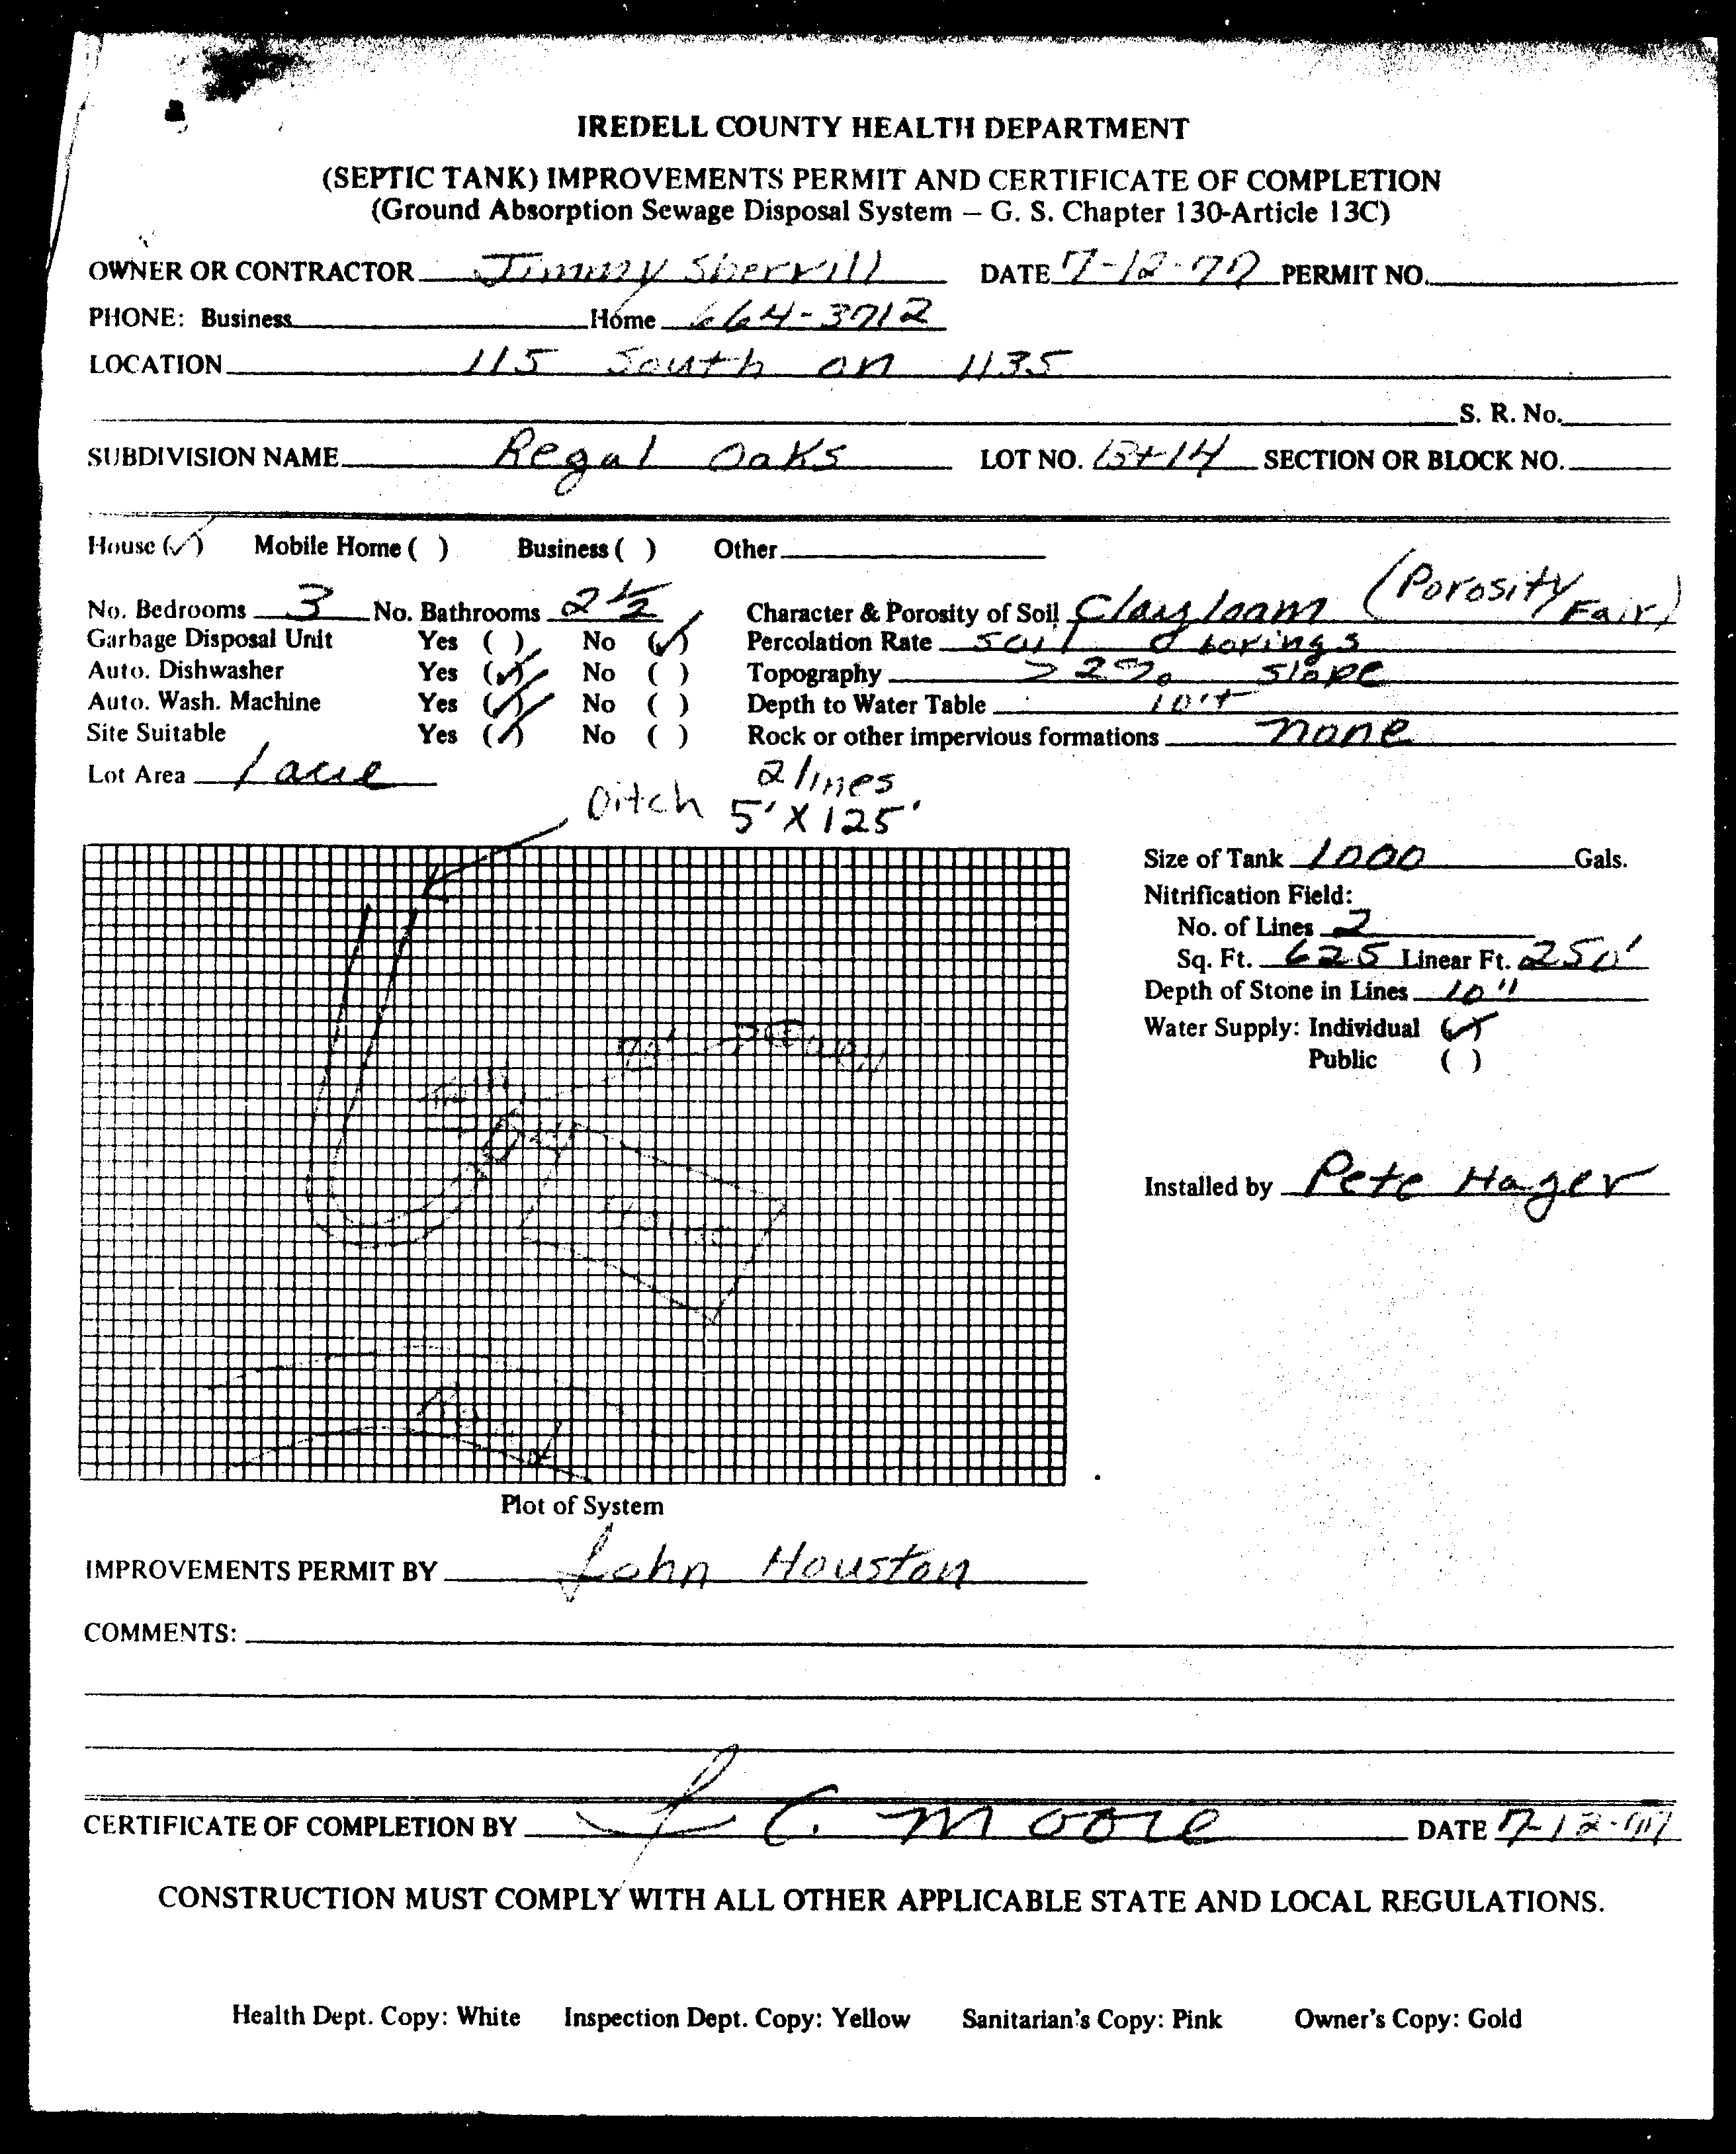 IREDELL COUNTY HEALTH DEPARTMENT
(SEPTIC TANK) IMPROVEMENTS PERMIT AND CERTIFICATE OF COMPLETION
(Ground Absorption Sewage Disposal System – G. S. Chapter 130-Article 13C)
OWNER OR CONTRACTOR Jimmy Sherrill DATE 7-12-77 PERMIT NO.
PHONE: Business Home 664-3712
LOCATION 115 South on 1135
S. R. No.
SUBDIVISION NAME Regal Oaks LOT NO. 13+14 SECTION OR BLOCK NO.
House (✓) Mobile Home ( ) Business ( ) Other
No. Bedrooms 3 No. Bathrooms 2 1/2 Character & Porosity of Soil Clay loam (Porosity Fair)
Garbage Disposal Unit Yes ( ) No (✓) Percolation Rate soil borings
Auto. Dishwasher Yes (✓) No ( ) Topography > 2% slope
Auto. Wash. Machine Yes (✓) No ( ) Depth to Water Table 10'+
Site Suitable Yes (✓) No ( ) Rock or other impervious formations none
Lot Area 1 acre
Ditch 2 lines
5' X 125'
Size of Tank 1000 Gals.
Nitrification Field:
No. of Lines 2
Sq. Ft. 625 Linear Ft. 250'
Depth of Stone in Lines 10"
Water Supply: Individual (✓)
Public ( )
Installed by Pete Hager
Plot of System
IMPROVEMENTS PERMIT BY John Houston
COMMENTS:
CERTIFICATE OF COMPLETION BY J C. Moore DATE 7-12-77
CONSTRUCTION MUST COMPLY WITH ALL OTHER APPLICABLE STATE AND LOCAL REGULATIONS.
Health Dept. Copy: White Inspection Dept. Copy: Yellow Sanitarian's Copy: Pink Owner's Copy: Gold